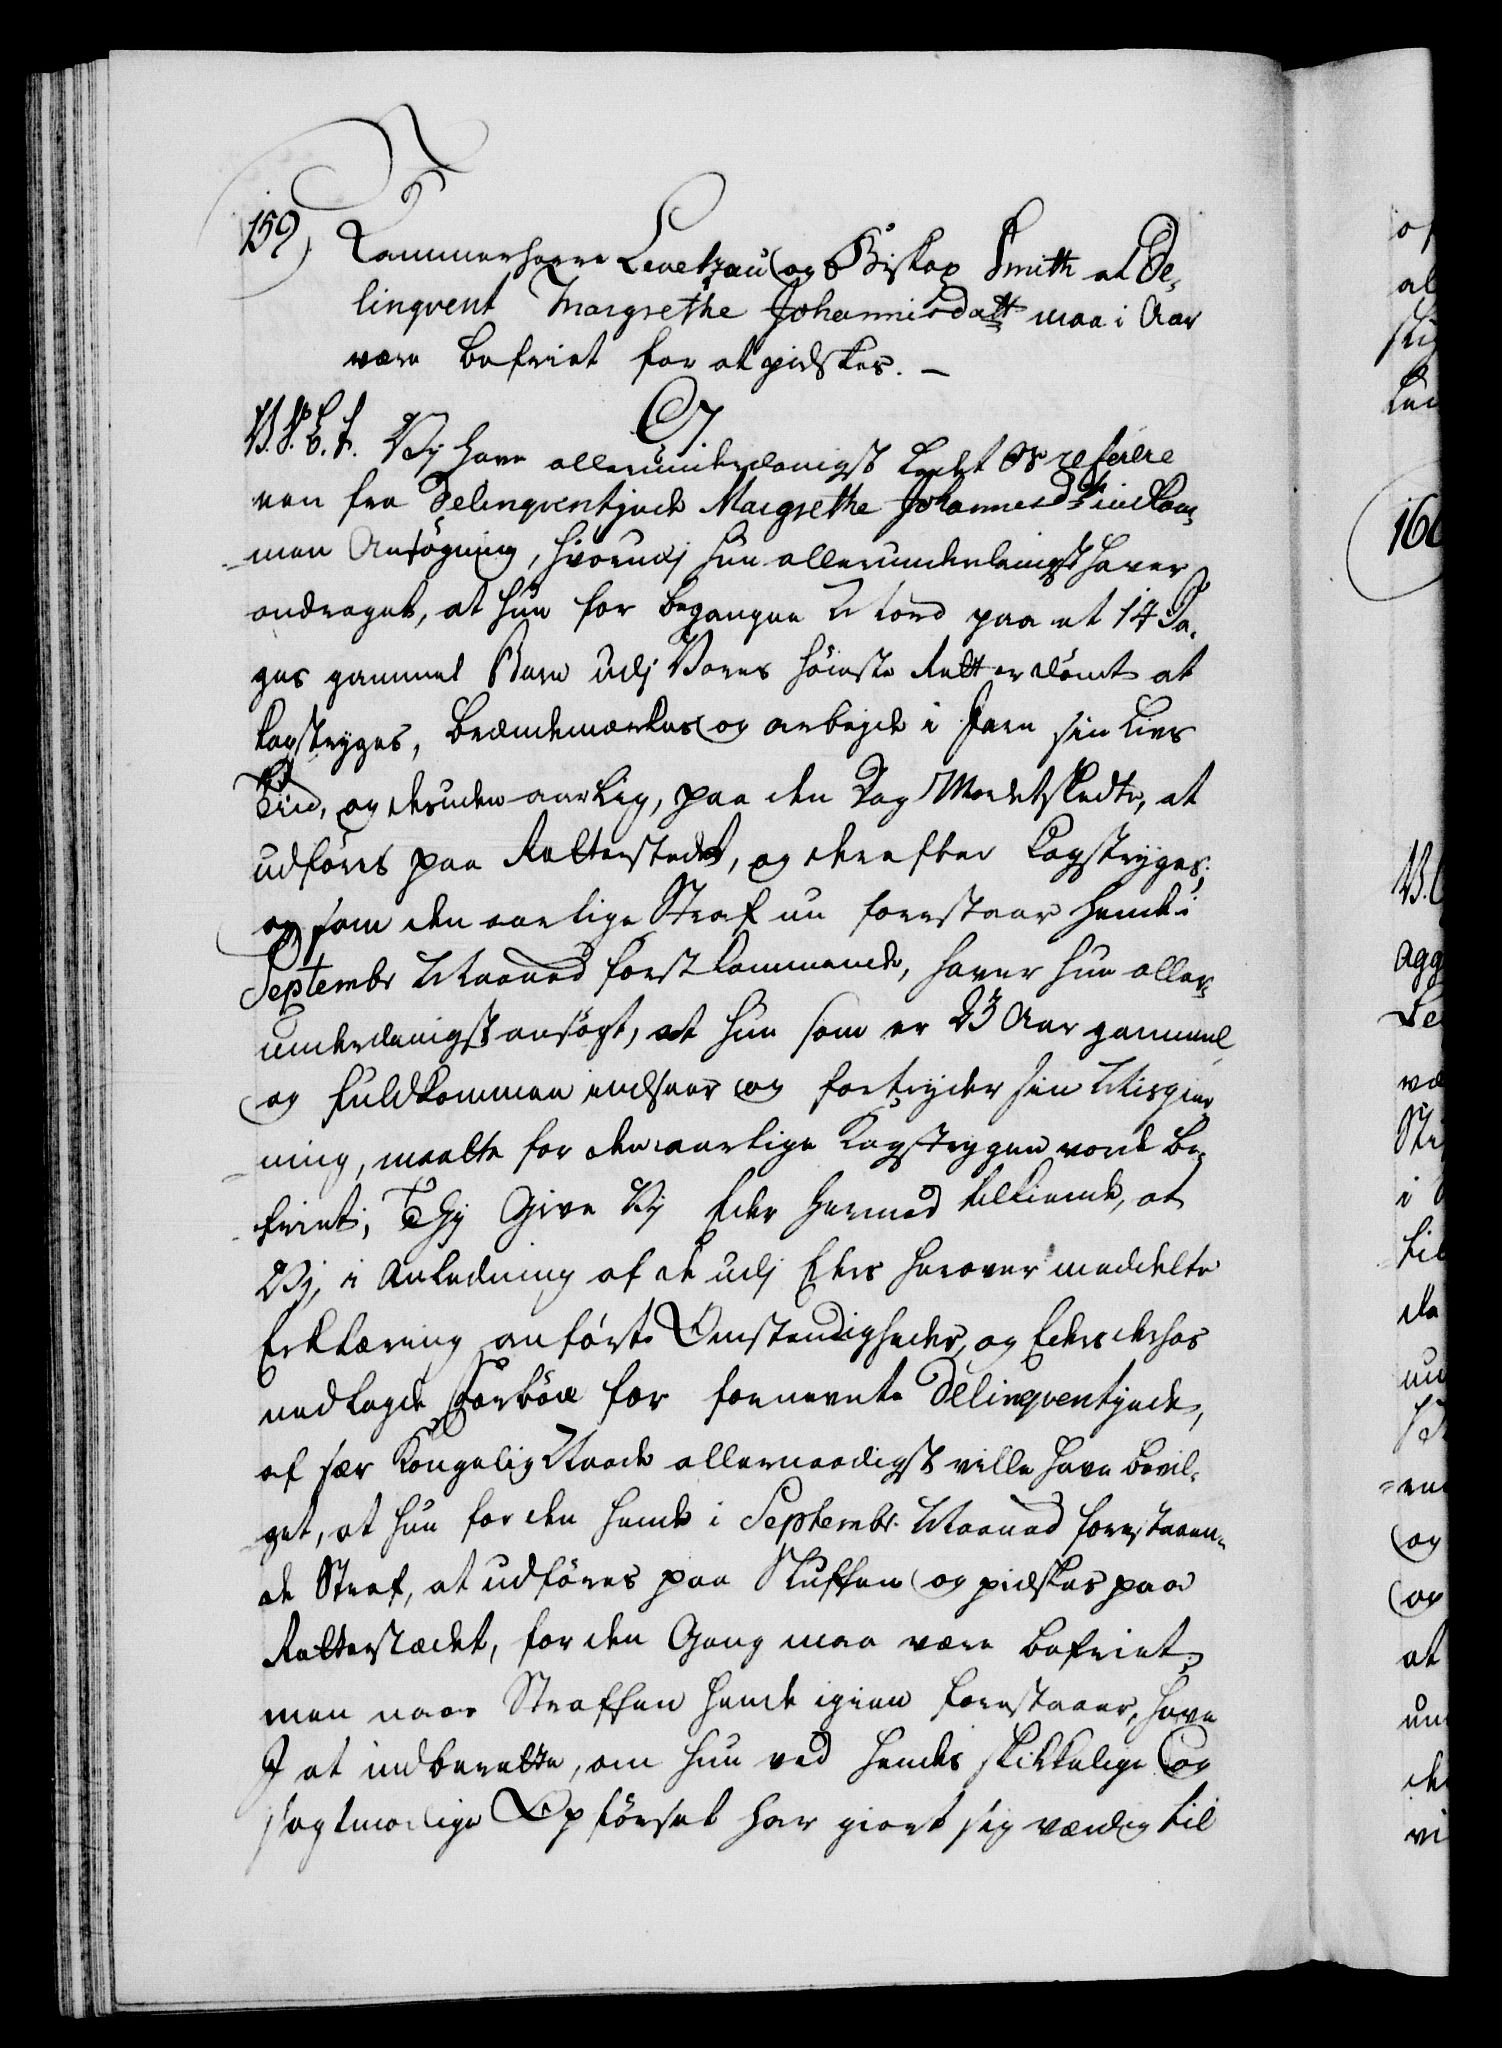 159, Kammerherre Levetzau og Biskop Smith at De-
linqvent Margrethe Johannisdatt maa i Aar
være befriet for at pidskes. —
C7.
V. S. G. T. Vij have allerunderdanigst ladet Os referere
een fra Delinqventjnde Margrethe Johannesd indkom-
men Ansøgning, hvorudj hun allerunderdanigst haver
andraget, at hun for begangne Mord paa et 14 Da-
ges gammel Barn udj Vores høieste Rett er dömt at
kagstryges, brændemærkes og arbejde i Jern sin Livs
Tid, og desuden aarlig, paa den Dag Mordet skedte, at
udföres paa Retterstedet, og derefter kagstryges;
og som den aarlige Straf nu forestaar hende i
Septembr Maaned förstkommende, haver hun aller-
underdanigst ansögt, at hun som er 23 Aar gammel
og fuldkommen indseer og fortryder sin Misgier-
ning, maatte for den aarlige Kagstrygen vorde be-
friet; Thj Give Vj Eder hermed tilkiende, at
Vj, i Anledning af de udj Eders herover meddelte
Erklæring anförte Omstendigheder, og Eders derhos
nedlagde Forbön for fornevnte Delinqventjnde,
af sær Kongelig Naade allernaadigst ville have bevil-
get, at hun for den hende i Septembr. Maaned forestaaen-
de Straf, at udföres paa Sluffen og pidskes paa
Retterstædet, for den Gang maa være befriet;
men naar Straffen hende igien forestaaer, have
I at indberette, om hun ved hendes skikkelige og
sagtmodige Opförsel har giort sig værdig til
160